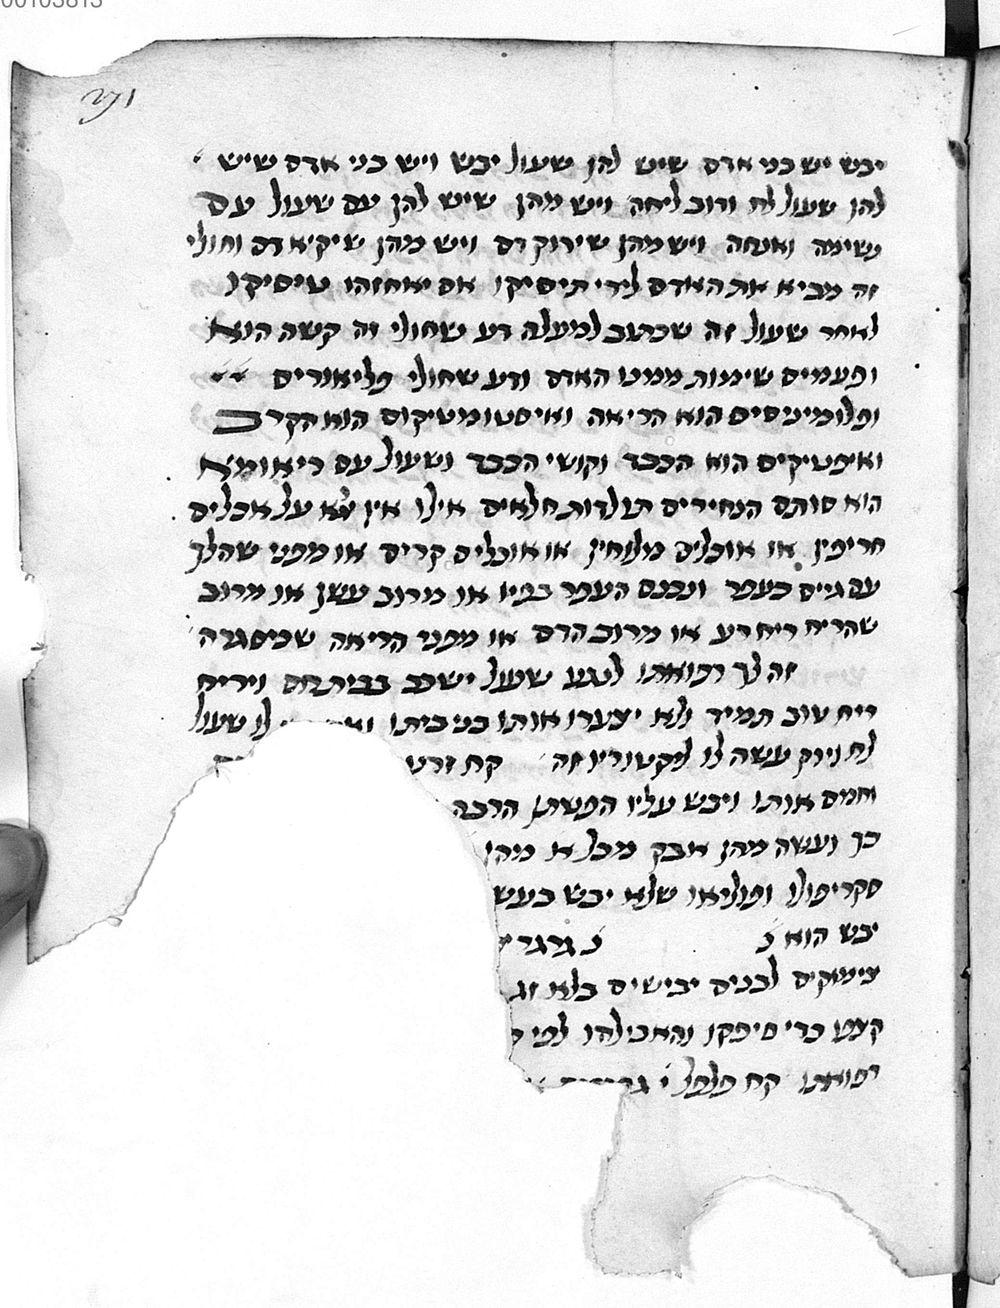 00103813
271
יבש יש בני אדם שיש להן שעול יבש ויש בני אדם שיש
להן שעול לח ורוב ליחה ויש מהן שיש להן עם שיעול עם
נשימה ואנחה ויש מהן שירוק דם ויש מהן שיקיא דם וחולי
זה מביא את האדם לידי תיסיקו אם יאחזהו טיסיקו
לאחר שעול זה שכתוב למעלה דע שחולי זה קשה הוא
ופעמים שימות ממנו האדם ודע שחולי פליאוריס
ופלומיניסיס הוא הריאה ואיסטומטיקוס הוא הקרב
ואיפטיקיס הוא הכבד וקושי הכבד ושעול עם ריאומא
הוא סותם הנחירים תולדות חלאים אילו אין אלא על אכלים
חריפין או אוכלים מלוחין או אוכלים קרים או מפני שהלך
עם גייס בעפר ונכנס העפר בפיו או מרוב עשן או מרוב
שהריח ריח רע או מרוב הדם או מפני הריאה שניסגרה
זה לך רפואתו לנגע שעול ישכב בבית חם ויריח
ריח טוב תמיד ולא יצערו אותו בני ביתו לו שעול
לח ניוק עשה לו ליקטוריו זה קח
חמם אותו ויבש עליו הפשתן הרבה
כך ועשה מהן אבק מכל א מהן
סקריפולו ופוליאו שלא יבש בעש
יבש הוא גרגר
צימוקים לבנים יבישים בלא זג
קעט כדי סיפקו והאכילהו לפי
רפואתו קח פלפל